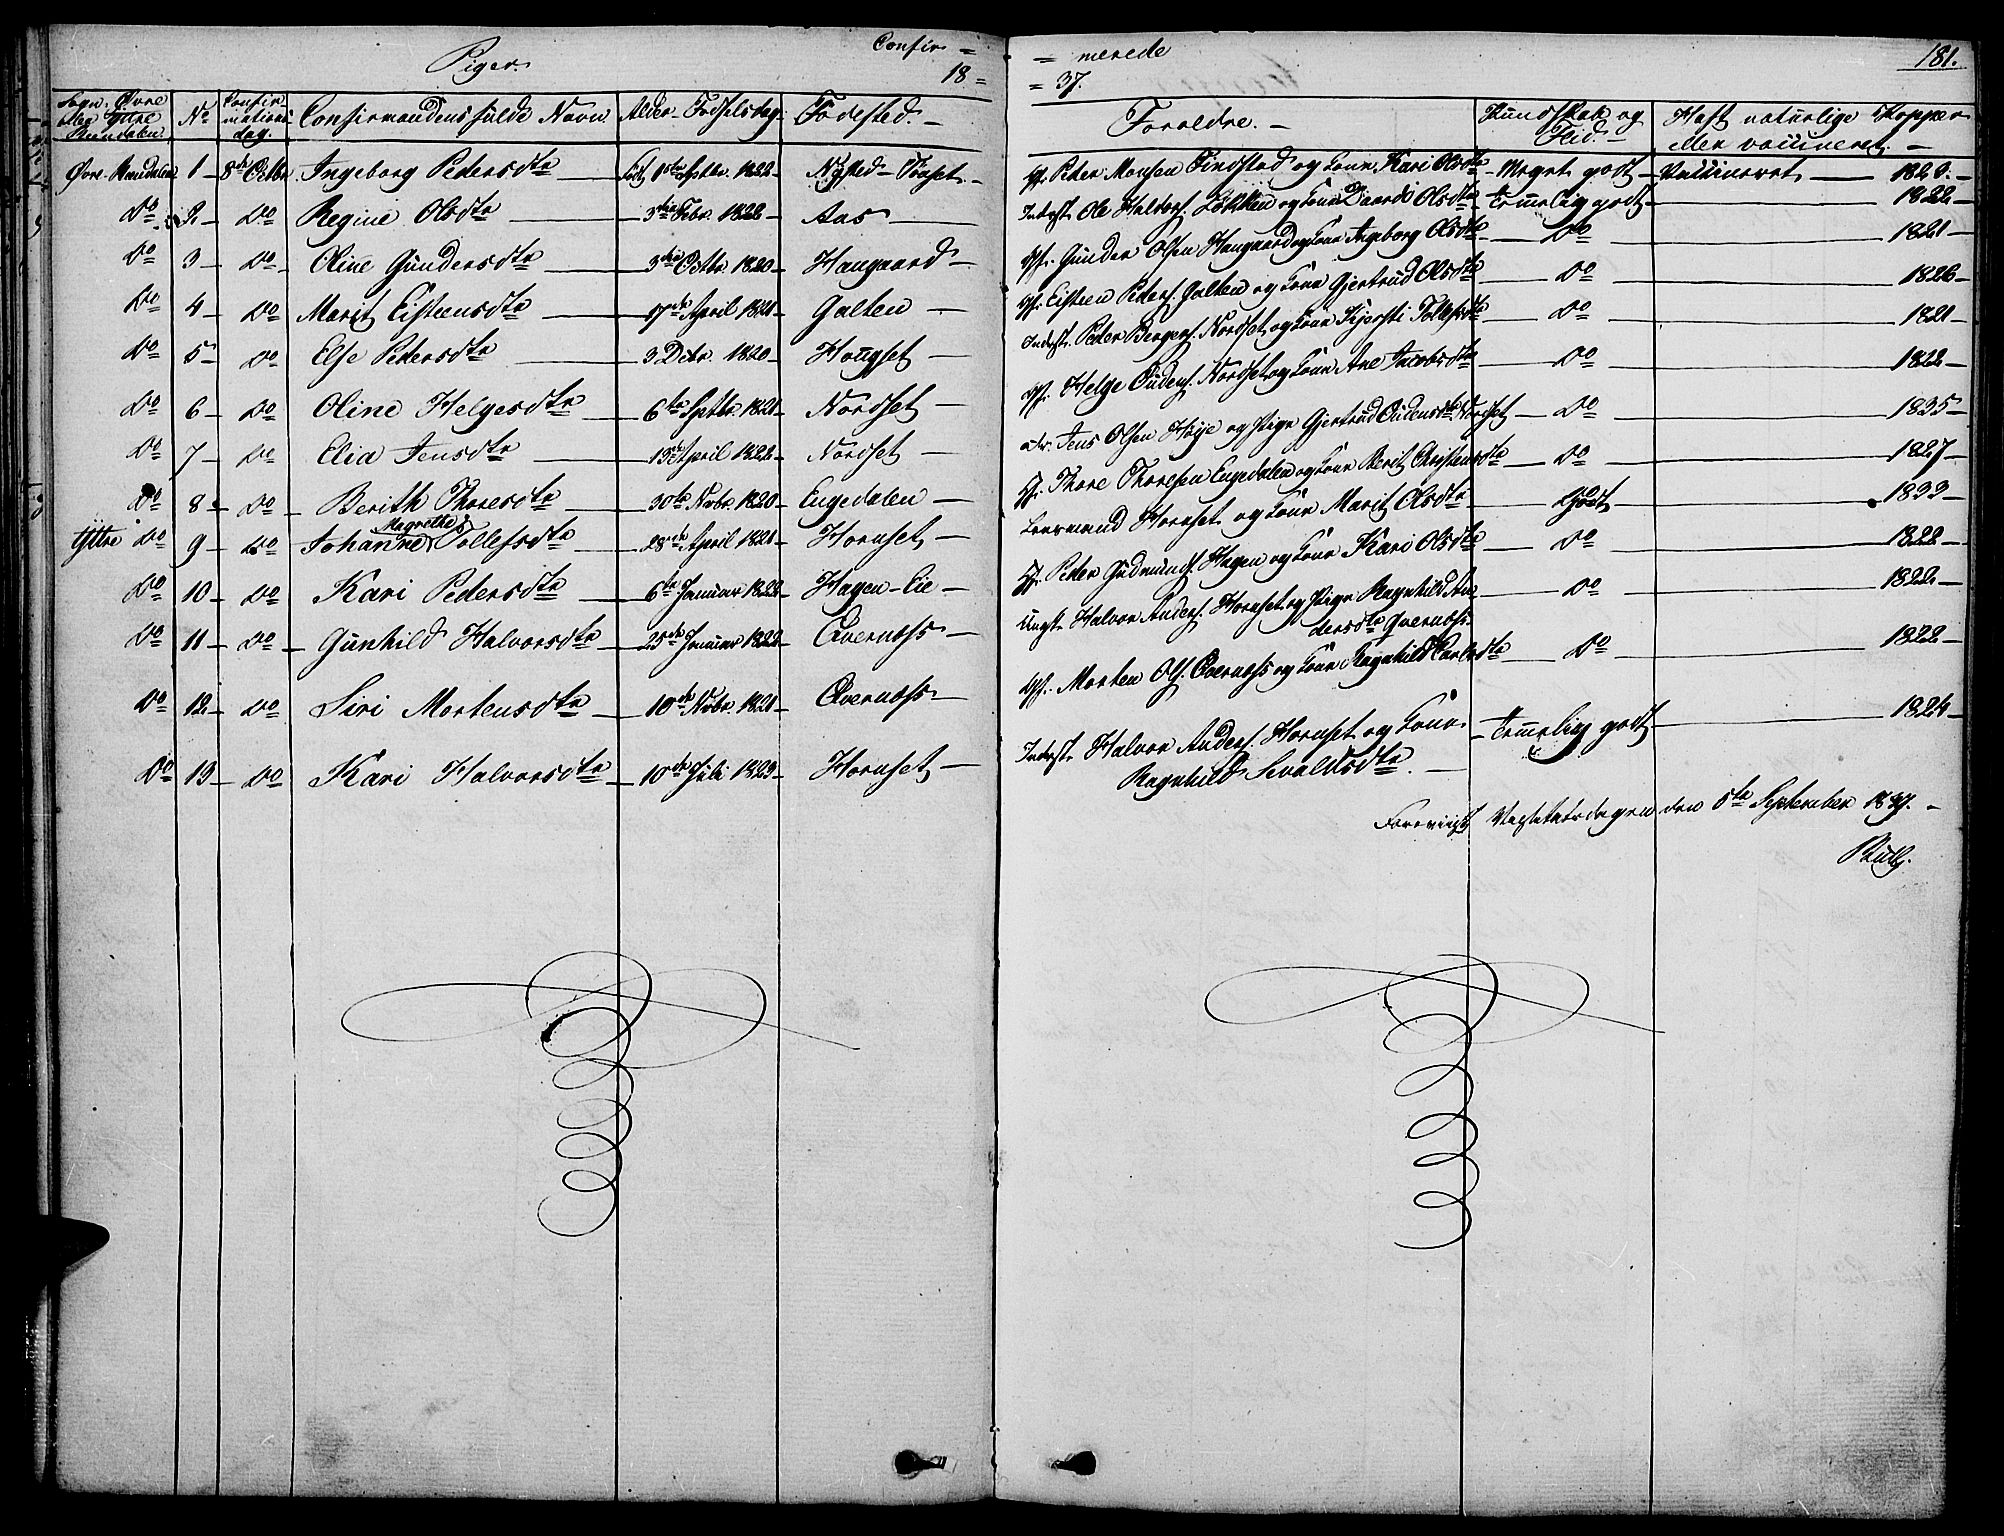 Piger.
Confir =
18 =
= merede
= 37.
181.
Sogn. Øvre eller Yttre Rendalen
No
Confirmations dag.
Confirmandens fulde Navn
Alder - Fødselsdag
Fødested -
Forældre. -
Kundskab og Flid. -
Haft naturlige Kopper eller vaccineret. -
Øvre Rendalen 1 - 8de Octbr. Ingeborg Pedersdtr - født 1ste Septbr. 1822 - Nysted - - Gf. Peder Monsen Findstad og Kone Kari Olsdtr - Meget godt - Vaccineret - 1823. -
Do 2 - Do Regine Olsdtr - 3die Febr. 1822 - Aas - Inderst Ole Haldors. Løkken og Kone Olsdtr - Temelig godt - 1822 -
Do 3 - Do - Oline Gundersdtr - 3die Octbr. 1820 - Haugaard - Gf. Gunder Olsen Haugaard og Kone Ingeborg Olsdtr - Do - 1821 -
Do 4 - Do Marit Eisteensdtr - 17de April 1821 - Galten - Gf. Eisteen Peders. Galten og Kone Gjertrud Olsdtr - Do - 1826 -
Do 5 - Do - Else Pedersdtr - 3 Decbr. 1820 - Hougset - Inderst. Peder Bergers. Nordset og Kone Kjersti Tollefsdtr - Do - 1821 -
Do 6 - Do - Oline Helgesdtr - 6te Septbr 1821 - Nordset - Gf. Helge Oudens. Nordset og Kone Ane Jacobsdtr - Do - 1822 -
Do 7 - Do - Elia Jensdtr - 19de April 1822 - Nordset - Jens Olsen Høye og Pige Gjertrud Oudensdtr Nordset - Do - 1835 -
Do 8 - Do - Berith Thoresdtr - 30te Novbr. 1820 - Engedalen - Thore Thoresen Engedalen og Kone Berit Christensdtr - Do - 1827 -
Yttre Do 9 - Do - Johanne Magrethe Tollefsdtr - 28de April 1821 - Hornset - Leensmand Hornset og Kone Marit Olsdtr - Godt - 1833 -
Do 10 - Do - Kari Pedersdtr - 6te Januar 1822 - Hagen-Eie - Peder Gudmunds. Hagen og Kone Kari Olsdtr - Do - 1822 -
Do 11 - Do - Gunhild Halvorsdtr - 25de Januar 1822 - Qvernæss - Ungk. Halvor Anders. Hornset og Pige Ragnhild Andersdtr Qvernæss. - Do - 1822 -
Do 12 - Do - Siri Mortensdtr - 10de Novbr. 1821 - Qvernæss - Gf. Morten Ols. Qvernæss og Kone Ragnhild Carlsdtr - Do - 1822 -
Do 13 - Do - Kari Halvorsdtr - 10de Juli 1823 - Hornset - Inderst. Halvor Anders. Hornset og Kone Ragnhild Sevaldsdtr. - Temelig godt - 1824 -
Foreviist Visitatsdagen den 5te September 1837. -